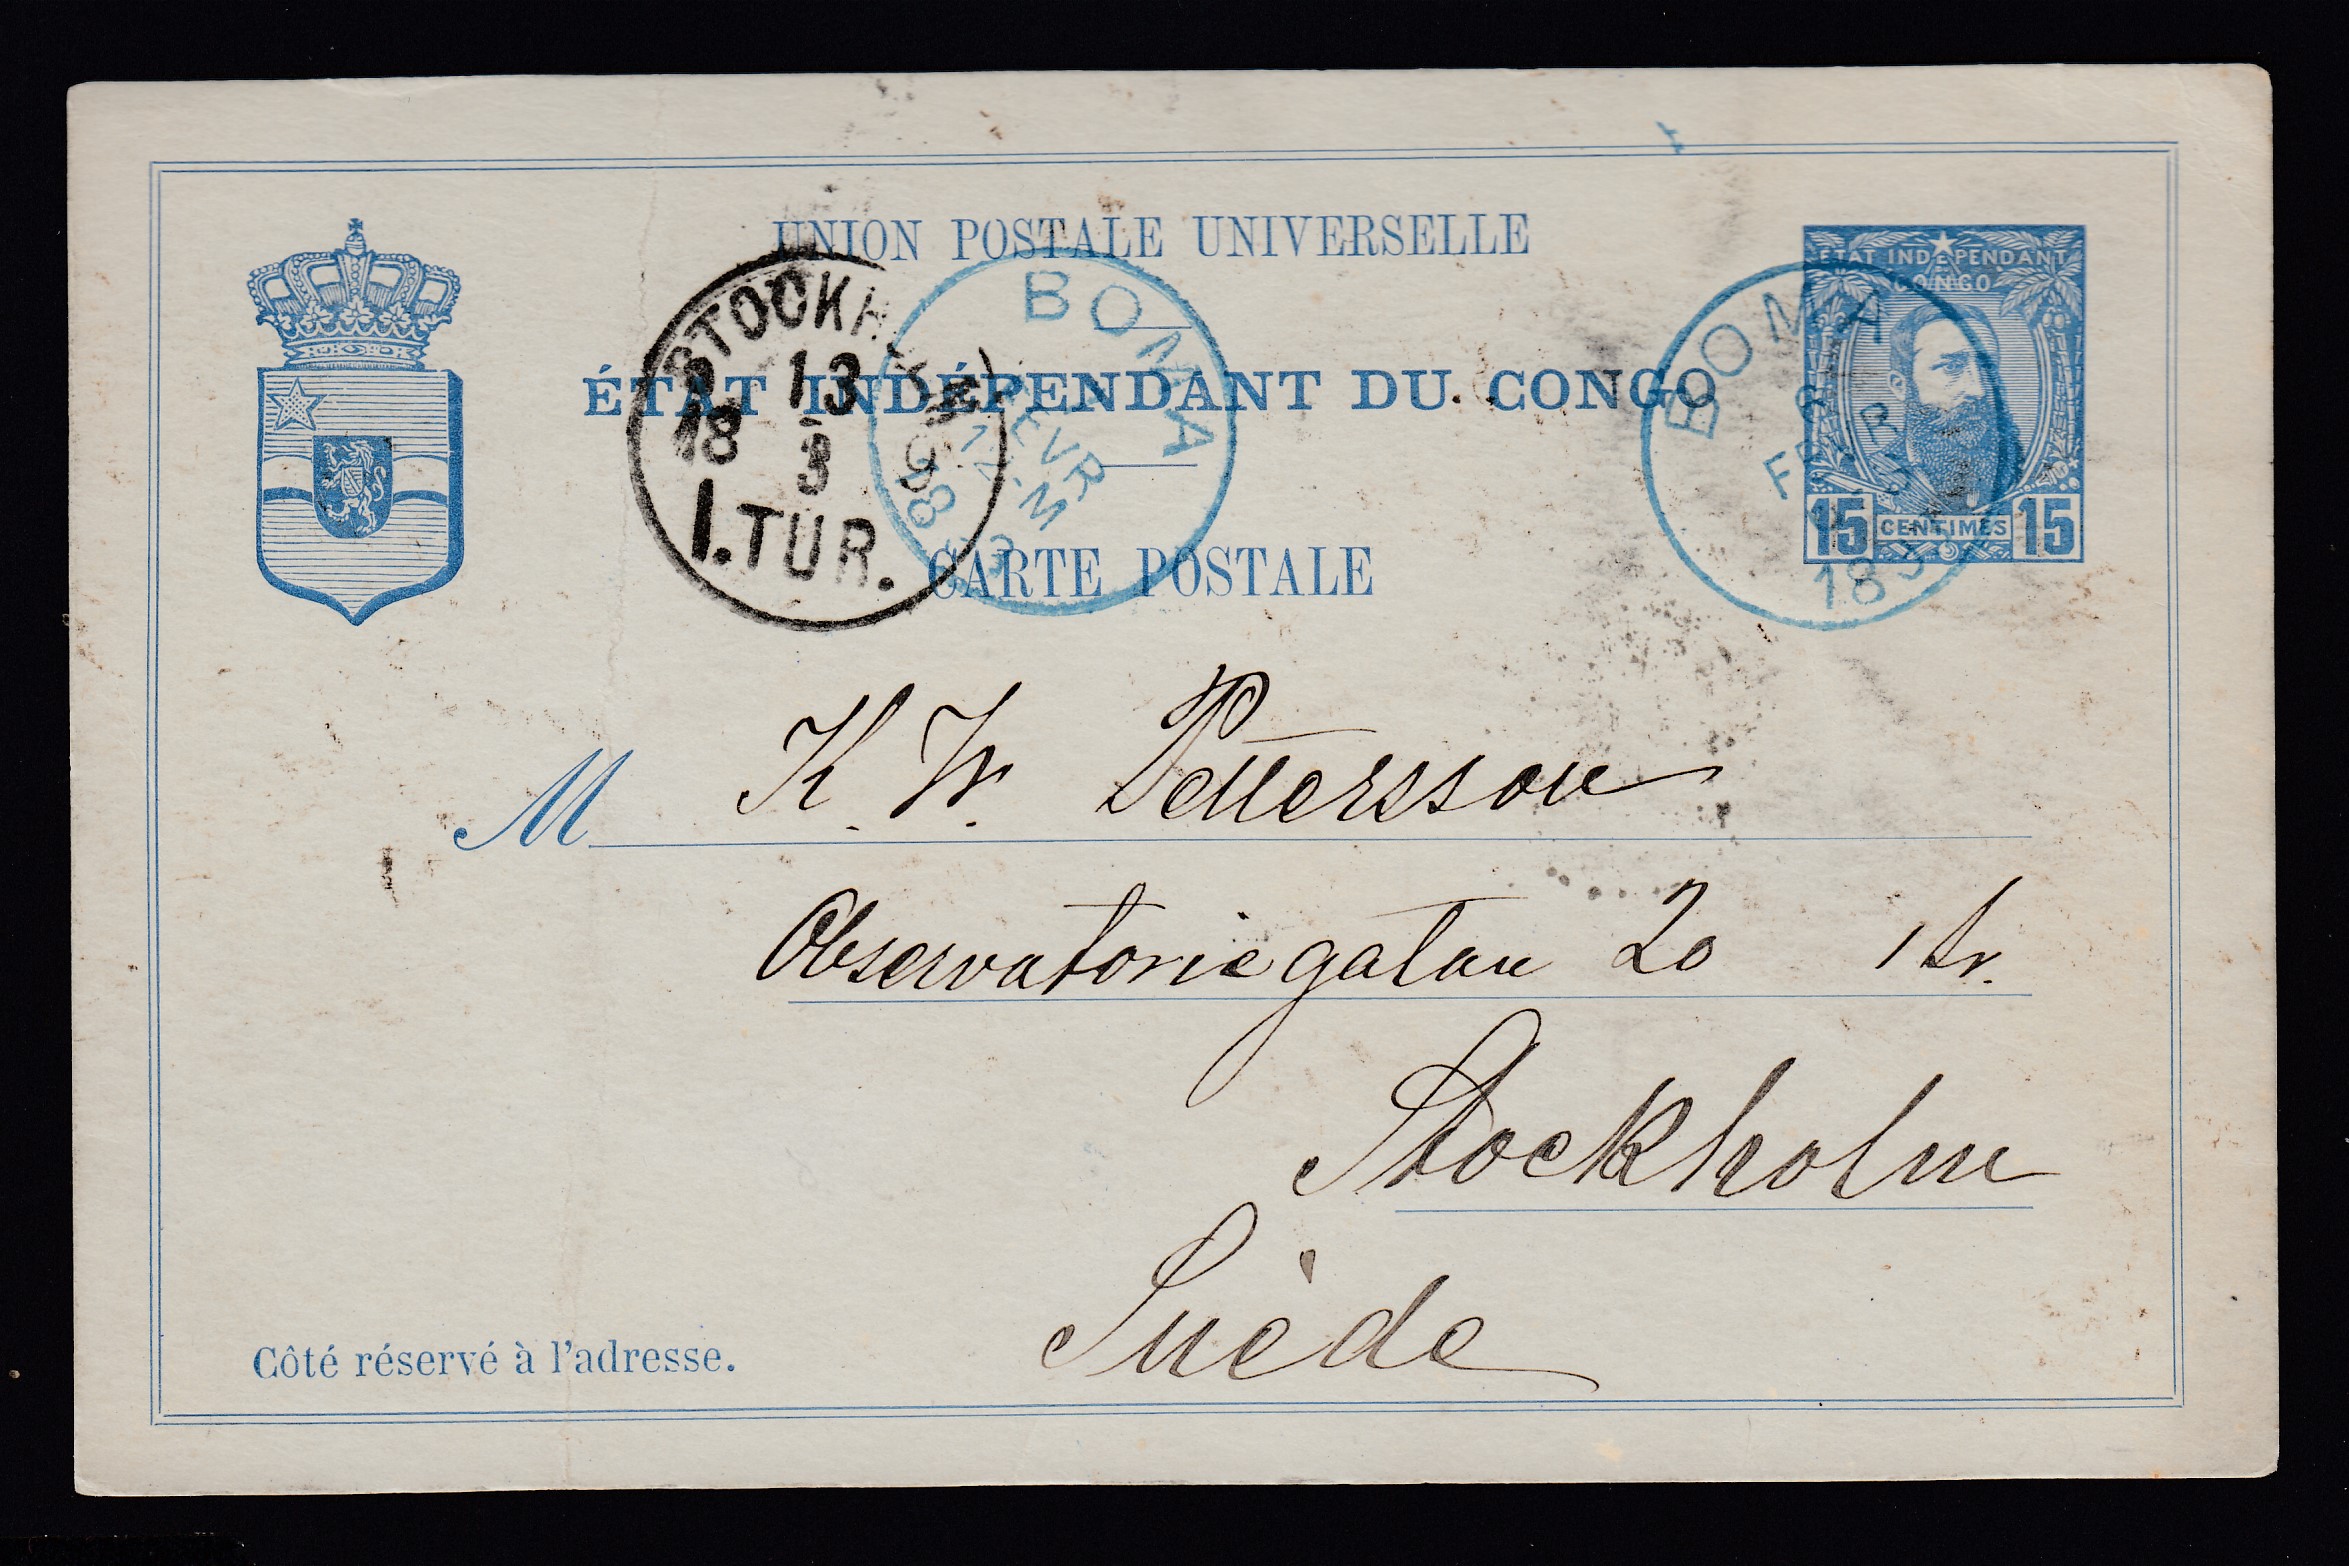 UNION POSTALE UNIVERSELLE
ÉTAT INDÉPENDANT DU CONGO
CARTE POSTALE
ETAT INDÉPENDANT
CONGO
15 CENTIMES 15
BOMA
6
FEVR
18
BOMA
FEVR
12-M
1893
STOCKHOLM
13
3
18 9
1.TUR.
M K. W. Pettersson
Observatoriegatan 20 1 tr.
Stockholm
Suède
Côté réservé à l'adresse.